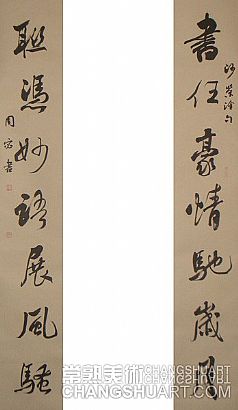 書任豪情馳歲月
聯憑妙語展風騷
常熟美術 CHANGSHUART
CHANGSHUART.COM